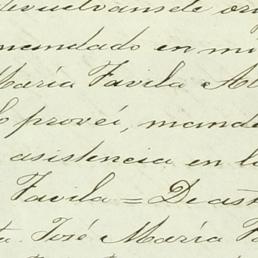 devuelvanse de ori
mandado en mi
María Favila Al
Lo proveí, mandé
asistencia en la
Favila = De as
ta. José María Fa